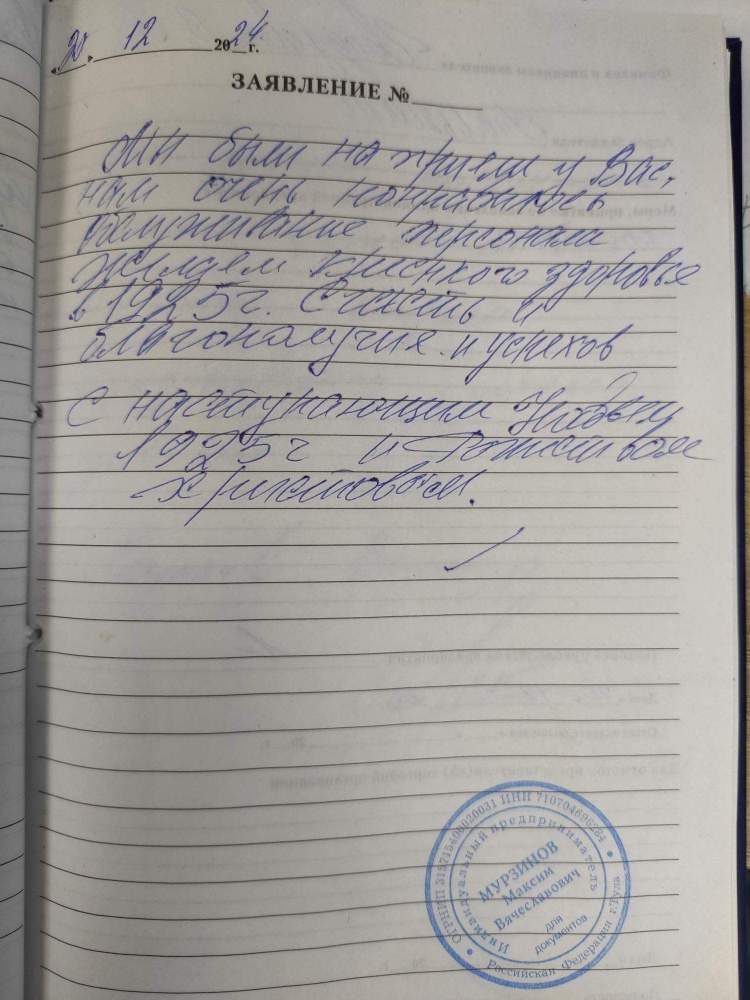 « 20 » 12 2024 г.
ЗАЯВЛЕНИЕ №
Мы были на приеми у Вас,
нам очень понравилось
обслуживание персонала
желаем крепкого здоровье
в 1925 г. Счасть и
благополучия и успехов
С наступающим Новым
1925 г и Рожеством
Христовым.
ОГРНИП ИНН
Индивидуальный предприниматель
МУРЗИНОВ
Максим
Вячеславович
для
документов
Российская Федерация г.Тула